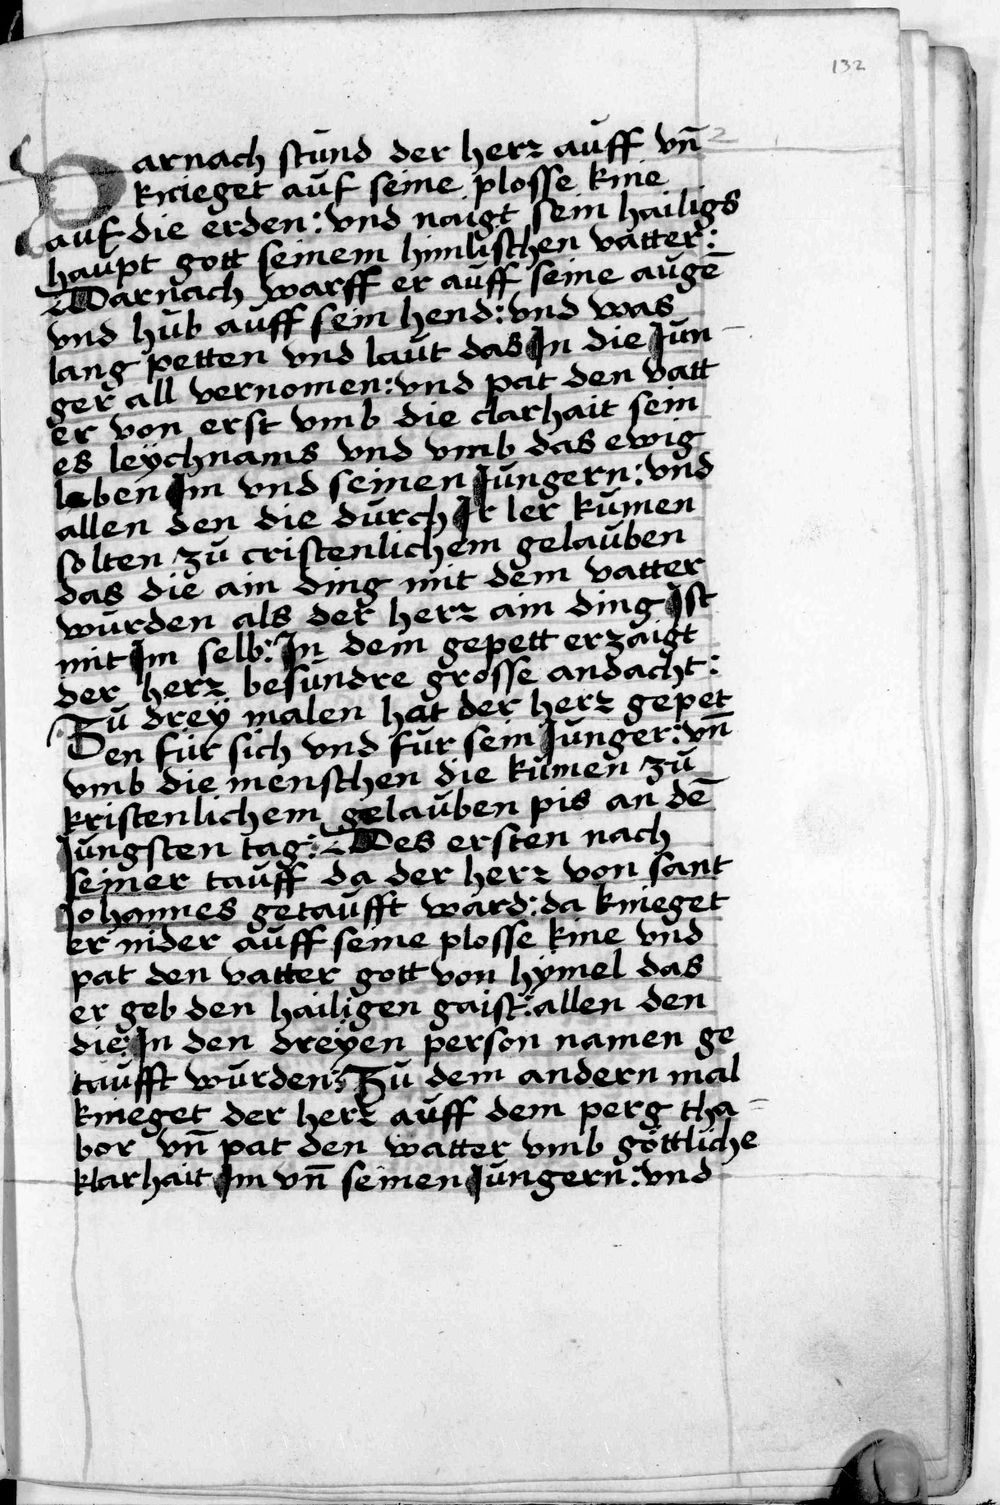 132
Darnach stund der herr auff vn̄
knieget auf seine plosse knie
auf die erden: vnd naigt sein hailigs
haupt gott seinem himlischen vatter:
Darnach warff er auff seine augē
vnd hub auff sein hend: vnd was
lang petten vnd laut das In die Jun-
ger all vernomen: vnd pat den vatt
er von erst vmb die clarhait sein
es leychnams vnd vmb das ewig
leben Im vnd seinen Jungern: vnd
allen den die durch Ir ler kumen
solten zu cristenlichem gelauben
das die ain ding mit dem vatter
wurden als der herr ain ding Ist
mit Im selb: In dem gepett erzaigt
der herr besundre grosse andacht:
Zu drey malen hat der herr gepet
en für sich vnd für sein Junger: vn̄
vmb die menschen die kumen zu
kristenlichem gelauben pis an dē
Jungsten tag: Des ersten nach
seiner tauff da der herr von sant
Johannes getaufft ward: da knieget
er nider auff seine plosse knie vnd
pat den vatter gott von hymel das
er geb den hailigen gaist: allen den
die In den dreyen person namen ge
taufft wurden: Zu dem andern mal
knieget der herr auff dem perg tha-
bor vn̄ pat den watter vmb göttliche
klarhait Im vn̄ seinen Jungern: vnd